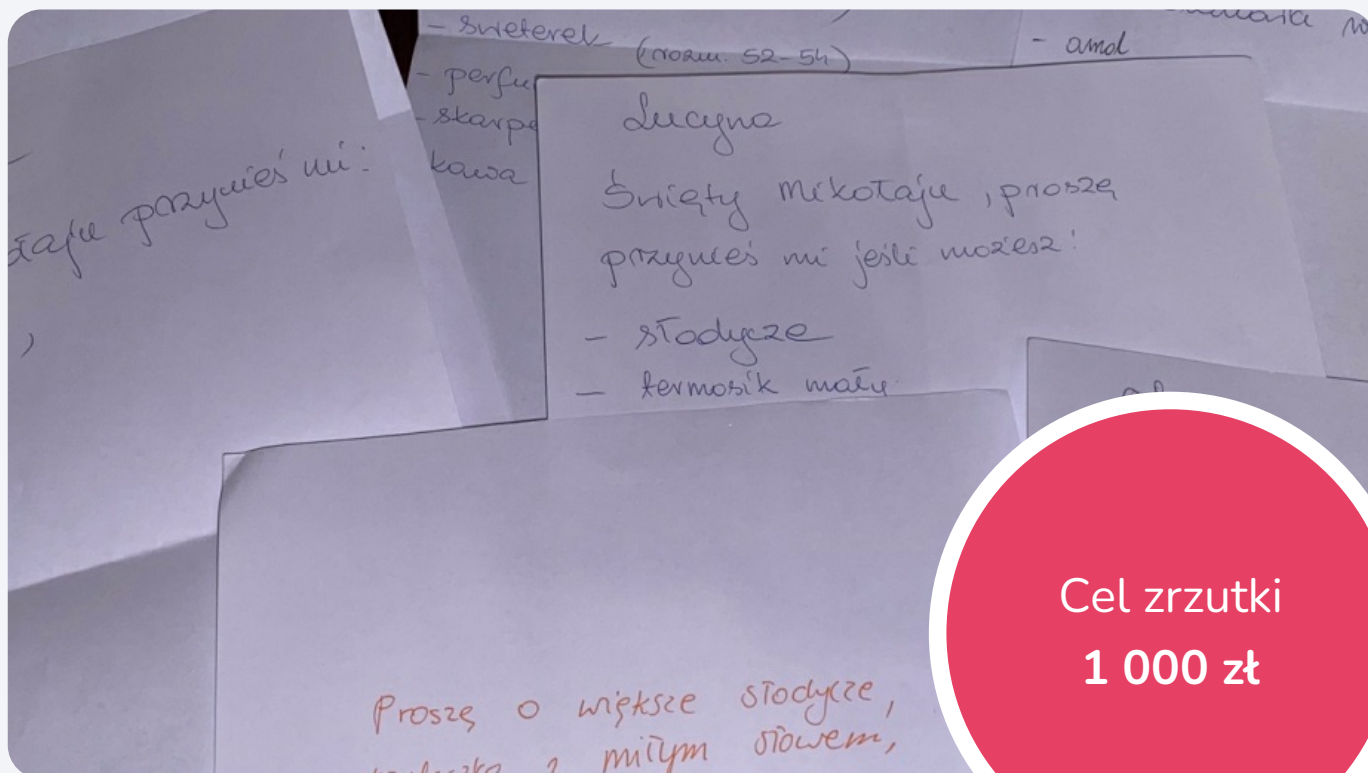 - sweterek
(rozm. 52-54)
- perfu
- skarpe
kawa
- amol
taju przynieś mi:
Lucyna
Święty Mikołaju, proszę
przynieś mi jeśli możesz:
- słodycze
- termosik mały
Proszę o większe słodycze,
z miłym słowem,
Cel zrzutki
1 000 zł